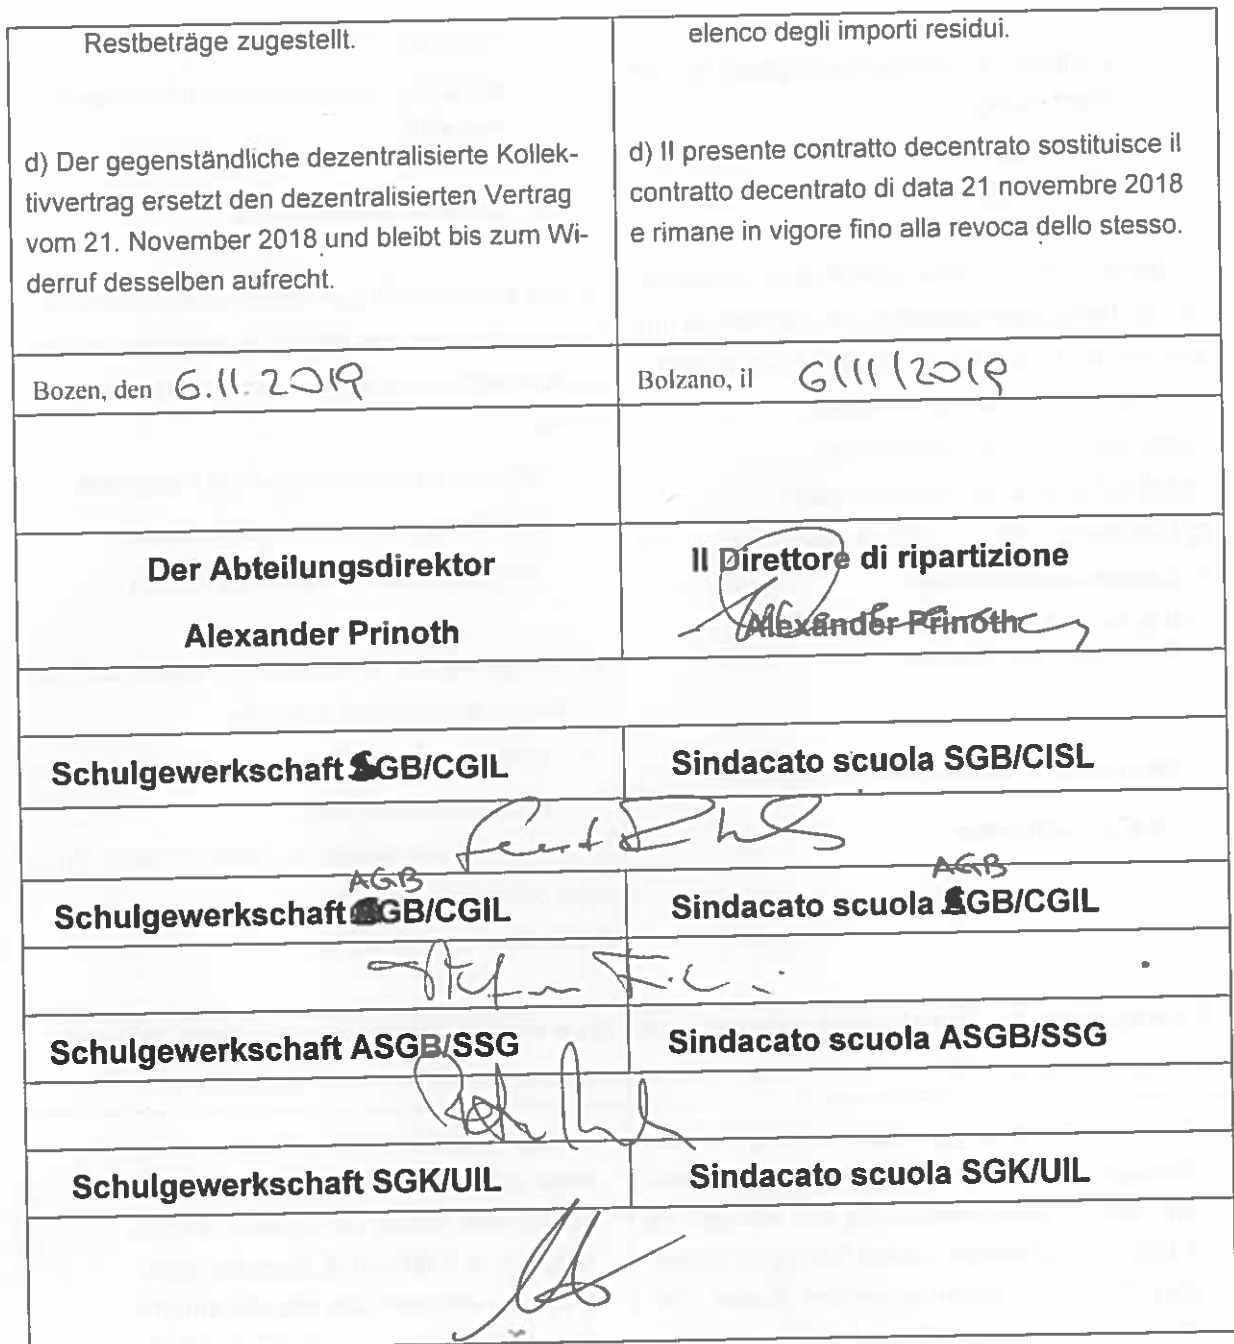 Restbeträge zugestellt.
d) Der gegenständliche dezentralisierte Kollek-
tivvertrag ersetzt den dezentralisierten Vertrag
vom 21. November 2018 und bleibt bis zum Wi-
derruf desselben aufrecht.
elenco degli importi residui.
d) Il presente contratto decentrato sostituisce il
contratto decentrato di data 21 novembre 2018
e rimane in vigore fino alla revoca dello stesso.
Bozen, den 6.11.2019
Bolzano, il 6/11/2019
Der Abteilungsdirektor
Alexander Prinoth
Il Direttore di ripartizione
Alexander Prinoth
Schulgewerkschaft SGB/CGIL
Sindacato scuola SGB/CISL
AGB
Schulgewerkschaft GB/CGIL
AGB
Sindacato scuola GB/CGIL
Schulgewerkschaft ASGB/SSG
Sindacato scuola ASGB/SSG
Schulgewerkschaft SGK/UIL
Sindacato scuola SGK/UIL